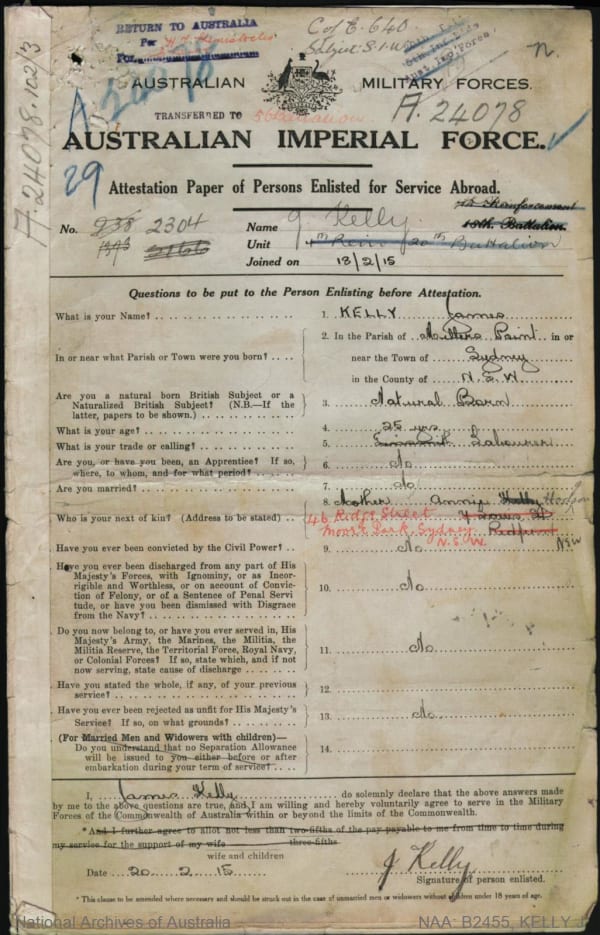 RETURN TO AUSTRALIA
Per H.T. Themistocles
C of E. 640
Subject S.I.W.
n.
A 24078
AUSTRALIAN MILITARY FORCES.
A. 24078
TRANSFERRED TO 56 Battalion
AUSTRALIAN IMPERIAL FORCE.
A. 24078. 102/3
29
Attestation Paper of Persons Enlisted for Service Abroad.
15 Reinforcement
18th. Battalion
No. 238 2304
3166
Name J. Kelly
Unit 4th Rein 20th Battalion
Joined on 18/2/15
Questions to be put to the Person Enlisting before Attestation.
What is your Name?
1. KELLY James
In or near what Parish or Town were you born?
2. In the Parish of Millers Point in or
near the Town of Sydney
in the County of N.S.W.
Are you a natural born British Subject or a
Naturalized British Subject? (N.B.—If the
latter, papers to be shown.)
3. Natural Born
What is your age?
4. 25 yrs
What is your trade or calling?
5. Labourer
Are you, or have you been, an Apprentice? If so,
where, to whom, and for what period?
6. No
Are you married?
7. No
Who is your next of kin? (Address to be stated)
8. Mother Annie Kelly Hodgson
46 Ridge Street
Moore Park, Sydney Redfern
N.S.W. NSW
Have you ever been convicted by the Civil Power?
9. No
Have you ever been discharged from any part of His
Majesty's Forces, with Ignominy, or as Incor-
rigible and Worthless, or on account of Convic-
tion of Felony, or of a Sentence of Penal Servi
tude, or have you been dismissed with Disgrace
from the Navy?
10. No
Do you now belong to, or have you ever served in, His
Majesty's Army, the Marines, the Militia, the
Militia Reserve, the Territorial Force, Royal Navy,
or Colonial Forces? If so, state which, and if not
now serving, state cause of discharge
11. No
Have you stated the whole, if any, of your previous
service?
12.
Have you ever been rejected as unfit for His Majesty's
Service? If so, on what grounds?
13. No
(For Married Men and Widowers with children)—
Do you understand that no Separation Allowance
will be issued to you either before or after
embarkation during your term of service?
14.
I, James Kelly do solemnly declare that the above answers made
by me to the above questions are true, and I am willing and hereby voluntarily agree to serve in the Military
Forces of the Commonwealth of Australia within or beyond the limits of the Commonwealth.
*And I further agree to allot not less than two-fifths of the pay payable to me from time to time during
three-fifths
my service for the support of my wife
wife and children
Date 20. 2. 15
J Kelly
Signature of person enlisted.
*This clause to be amended where necessary and should be struck out in the case of unmarried men or widowers without children under 18 years of age.
National Archives of Australia
NAA: B2455, KELLY J